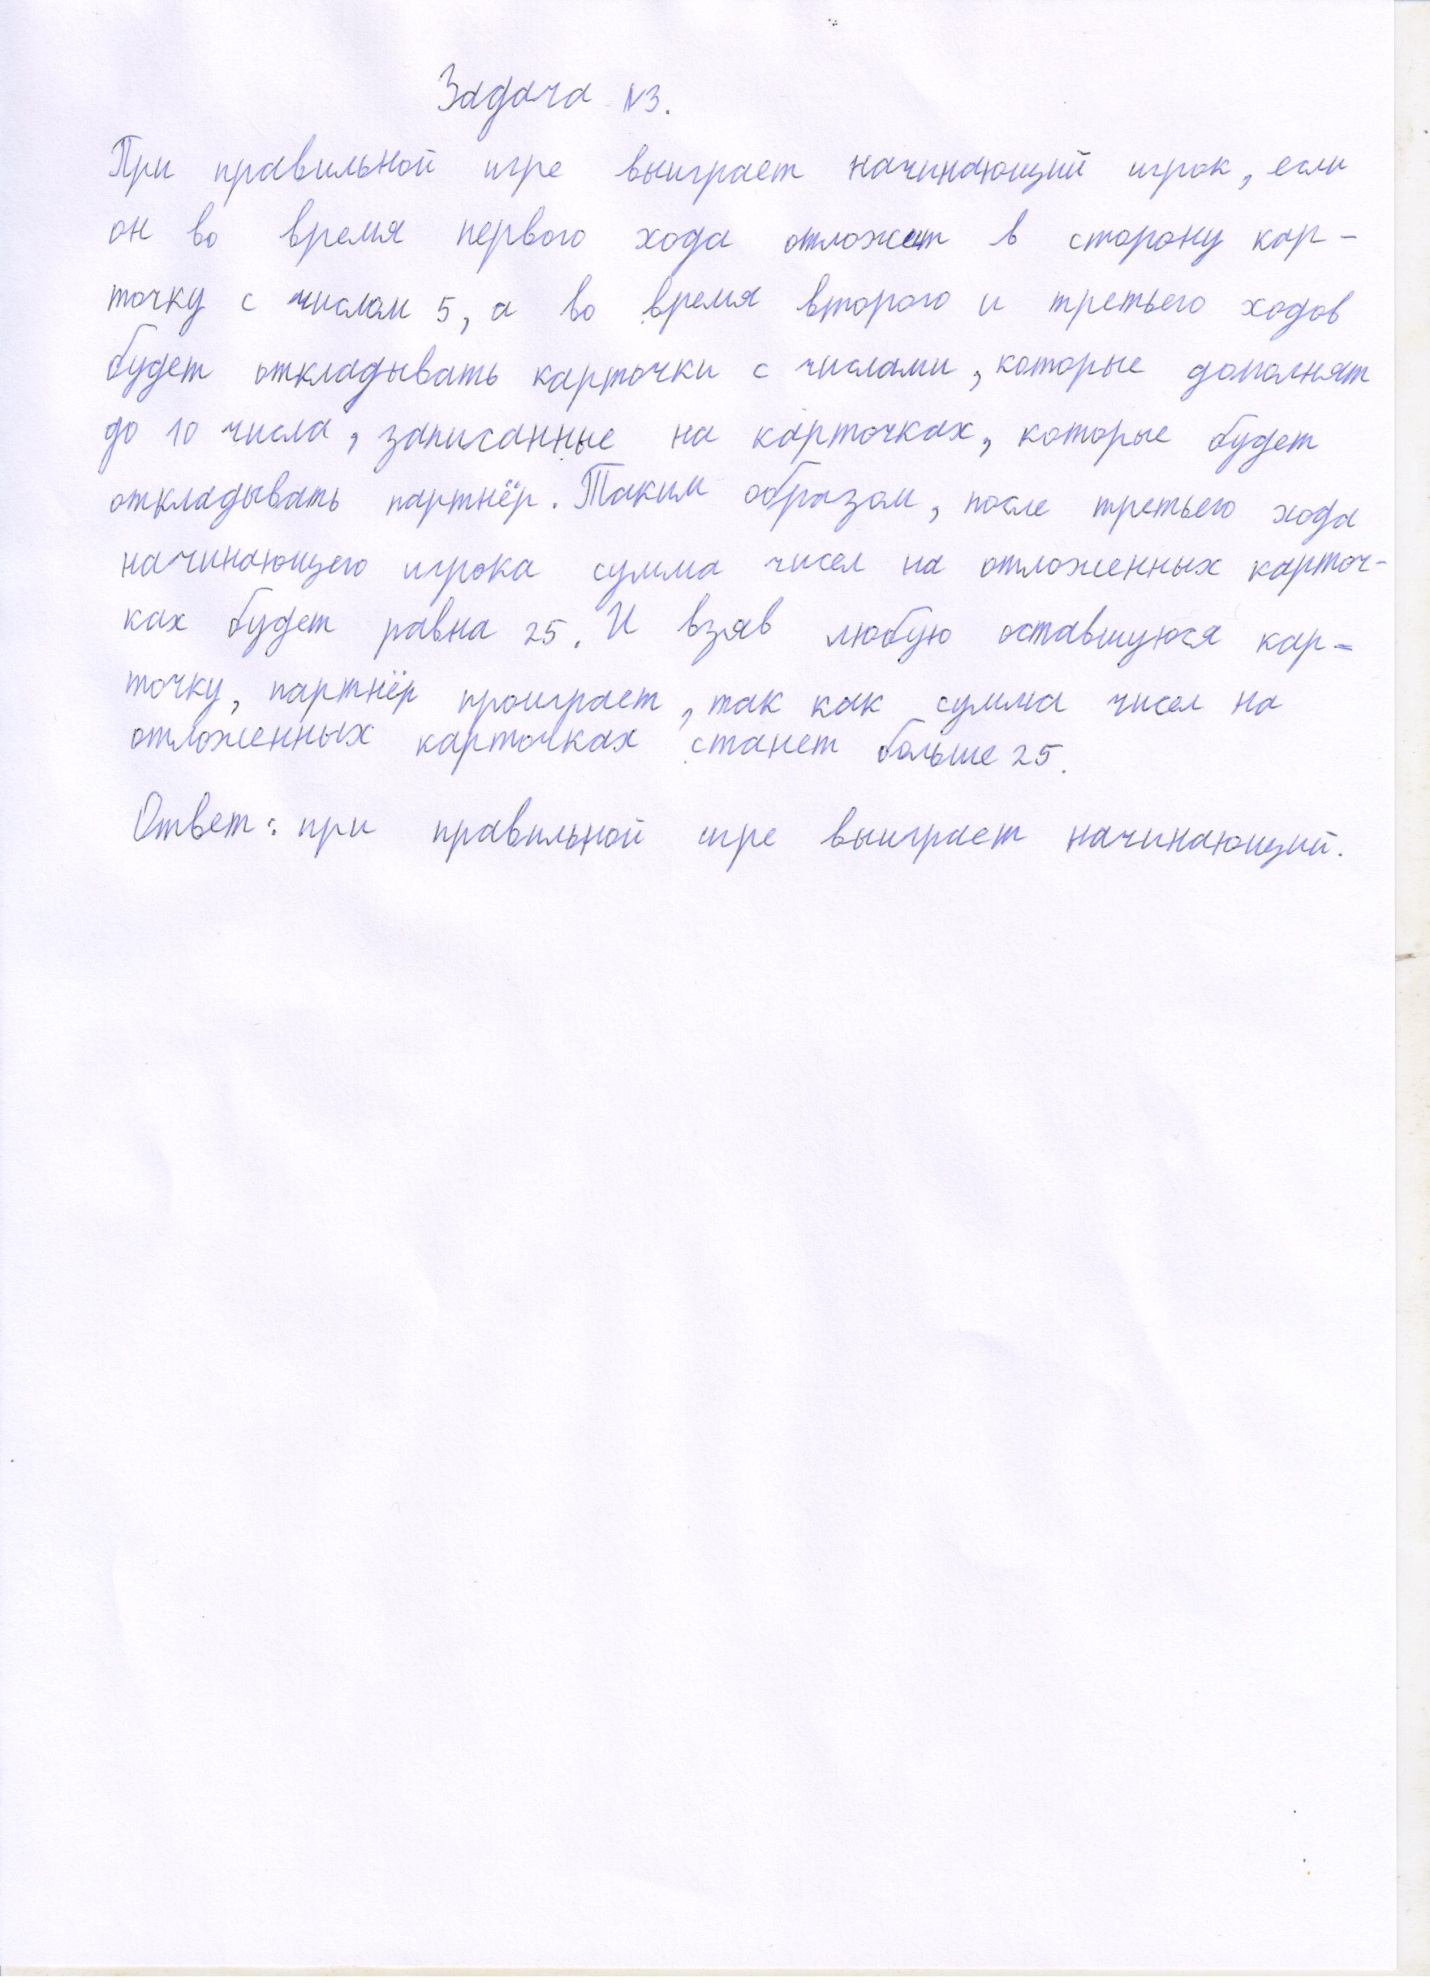 Задача №3.
При правильной игре выиграет начинающий игрок, если
он во время первого хода отложит в сторону кар-
точку с числом 5, а во время второго и третьего ходов
будет откладывать карточки с числами, которые дополнят
до 10 числа, записанные на карточках, которые будет
откладывать партнёр. Таким образом, после третьего хода
начинающего игрока сумма чисел на отложенных карточ-
ках будет равна 25. И взяв любую оставшуюся кар-
точку, партнёр проиграет, так как сумма чисел на
отложенных карточках станет больше 25.
Ответ: при правильной игре выиграет начинающий.